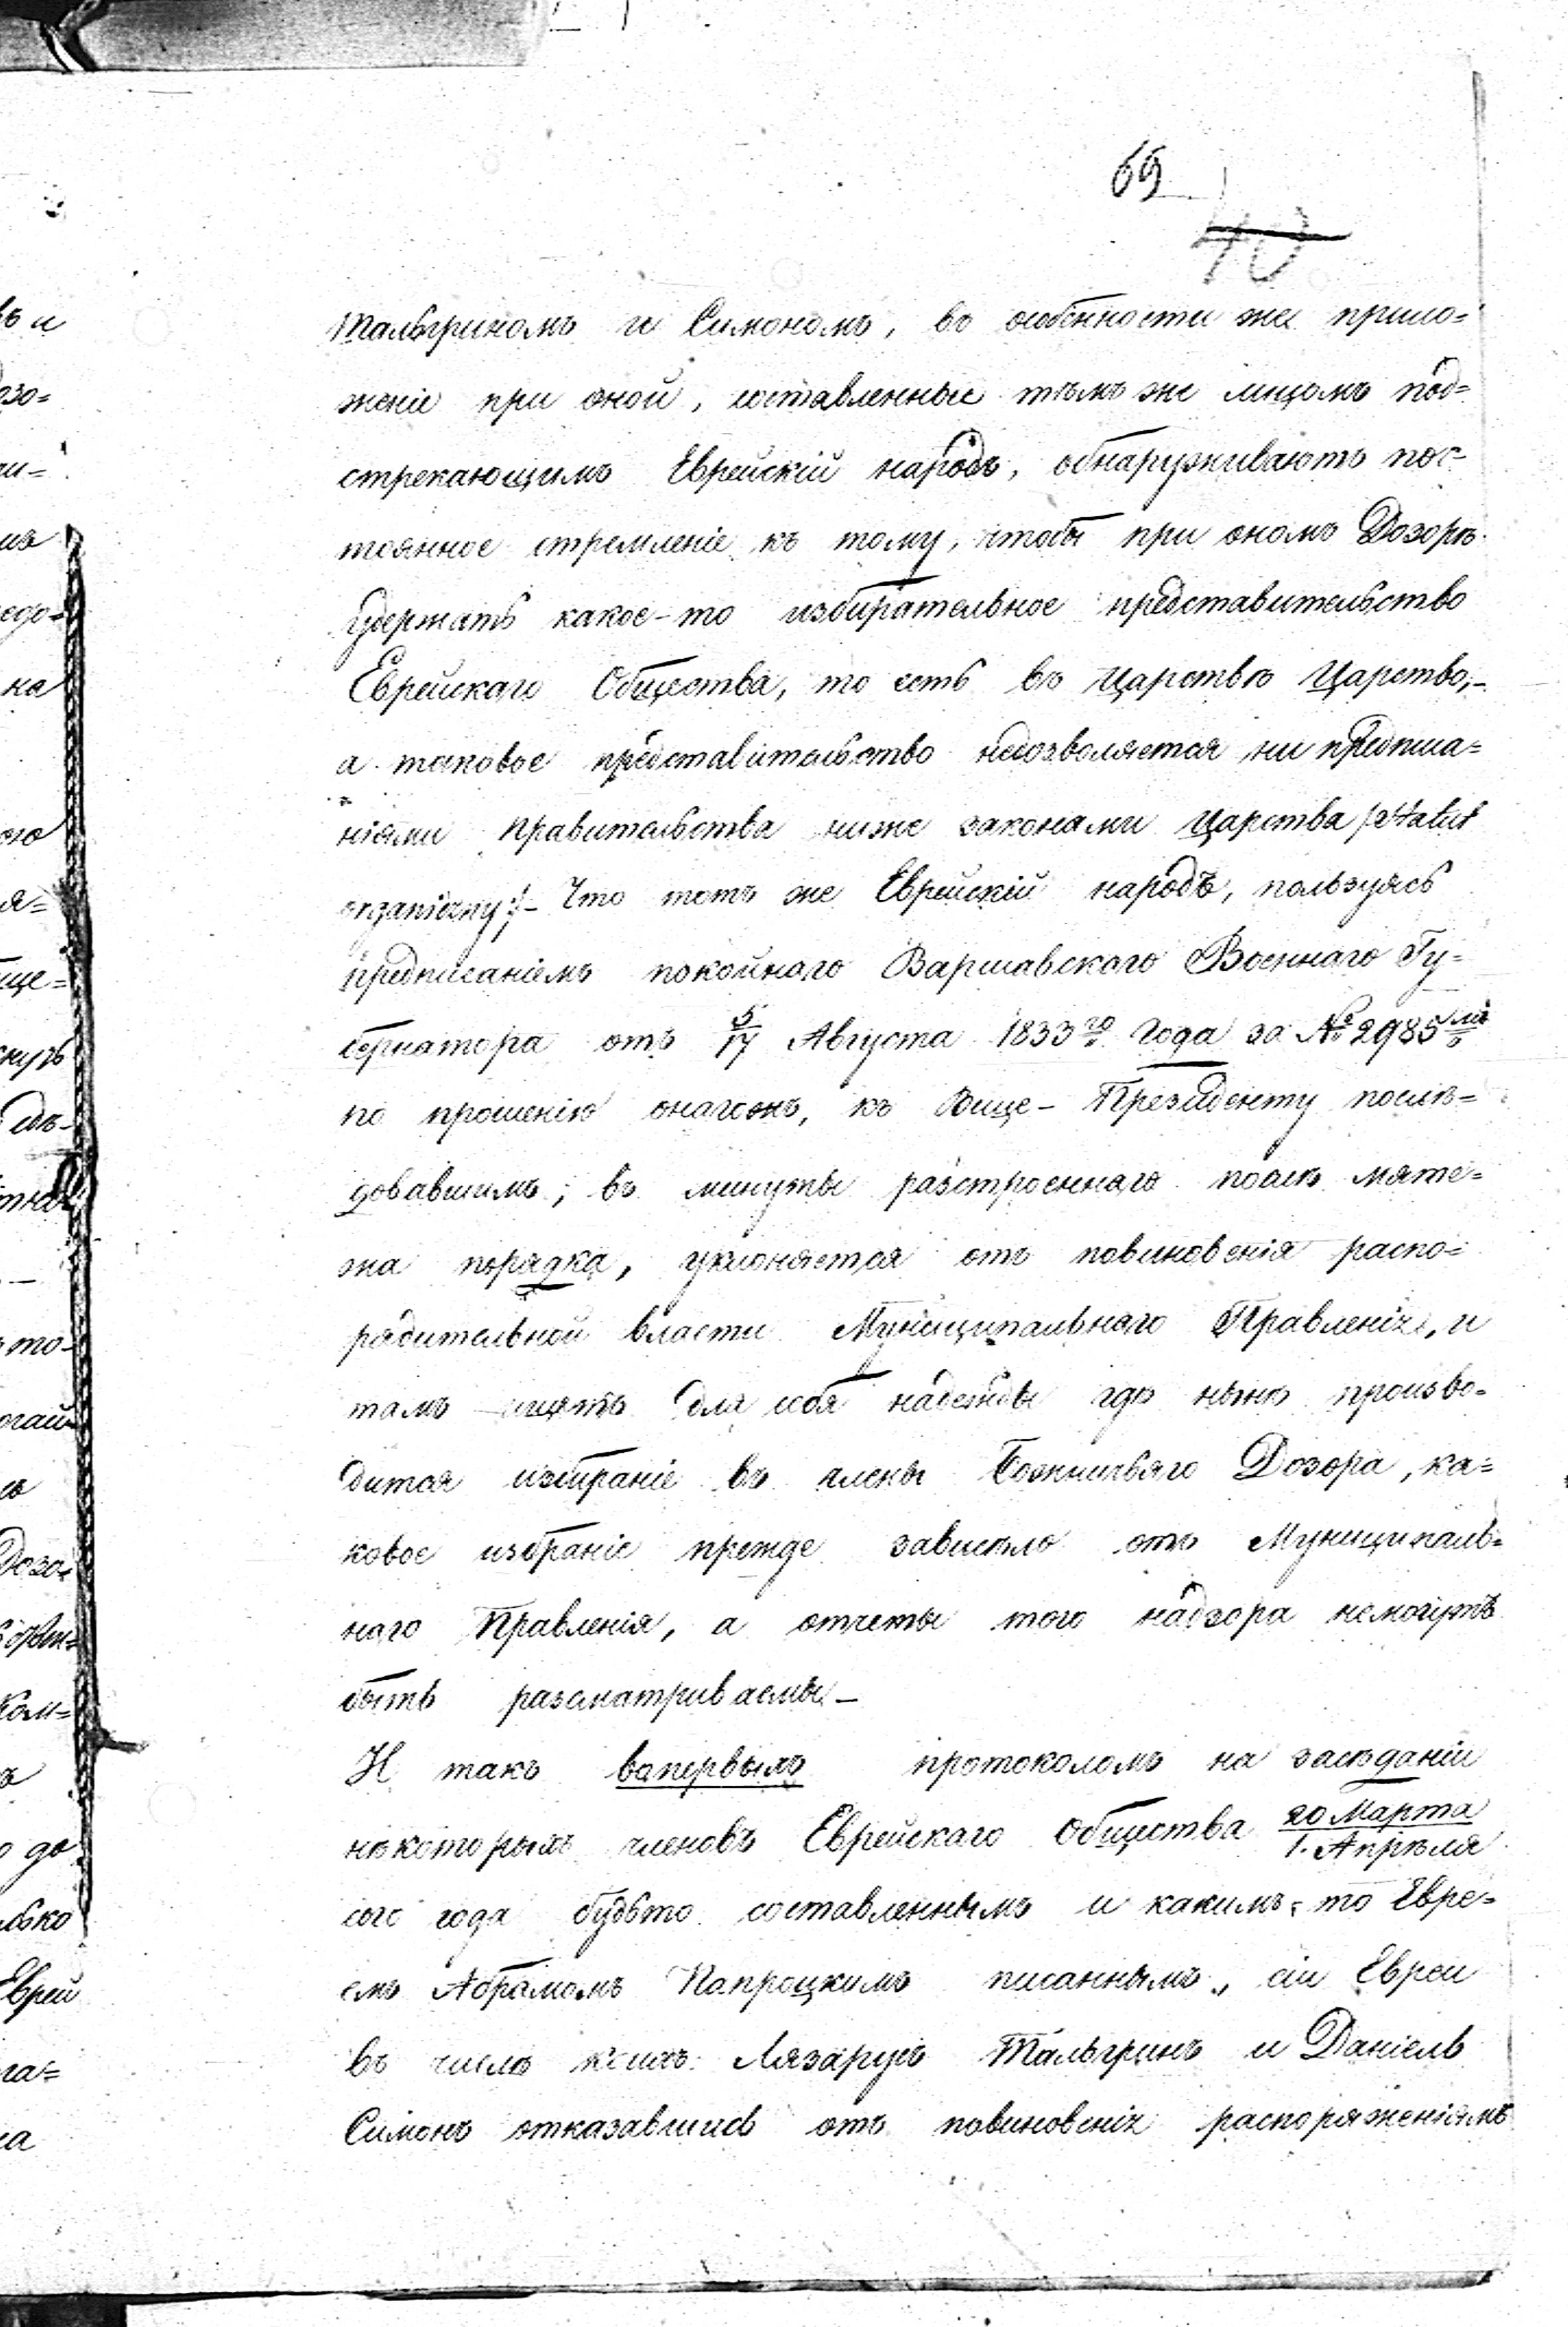 69
40
Тальгриномъ и Симономъ, въ особенности же прило=
женіе при оной, составленные тѣмъ же лицомъ под=
стрекающимъ Еврейскій народъ, обнаруживаютъ пос=
тоянное стремленіе къ тому, чтобы при ономъ Дозорѣ
удержать какое-то избирательное представительство
Еврейскаго Общества, то есть въ Царствѣ Царство,-
а таковое представительство недозволяется ни предписа=
ніями Правительства ниже законами Царства /:Statut
organiczny:/- Что тотъ же Еврейскій народъ, пользуясь
предписаніемъ покойнаго Варшавскаго Военнаго Гу=
бернатора отъ 5/17 Августа 1833го Года за № 2985мъ
по прошенію онагожъ, къ Вице-Президенту послѣ=
довавшимъ; въ минуты разстроеннаго послѣ мяте=
жа порядка, уклоняется отъ повиновенія распо=
рядительной власти Муниципальнаго Правленія, и
тамъ ищетъ для себя надежды гдѣ нынѣ произво=
дится избраніе въ члены Божничьяго Дозора, ка=
ковое избраніе прежде зависѣло отъ Муниципаль=
наго Правленія, а отчеты того надзора немогутъ
быть разсматриваемы.-
И такъ вопервыхъ протоколомъ на засѣданіи
нѣкоторыхъ членовъ Еврейскаго Общества 20 Марта/1. Апрѣля
сего года будьто составленнымъ и какимъ-то Евре=
емъ Абрамомъ Капроцкимъ писаннымъ, сіи Евреи
въ числѣ коихъ: Лязарусъ Тальгринъ и Даніель
Симонъ отказавшись отъ повиновенія распоряженіямъ